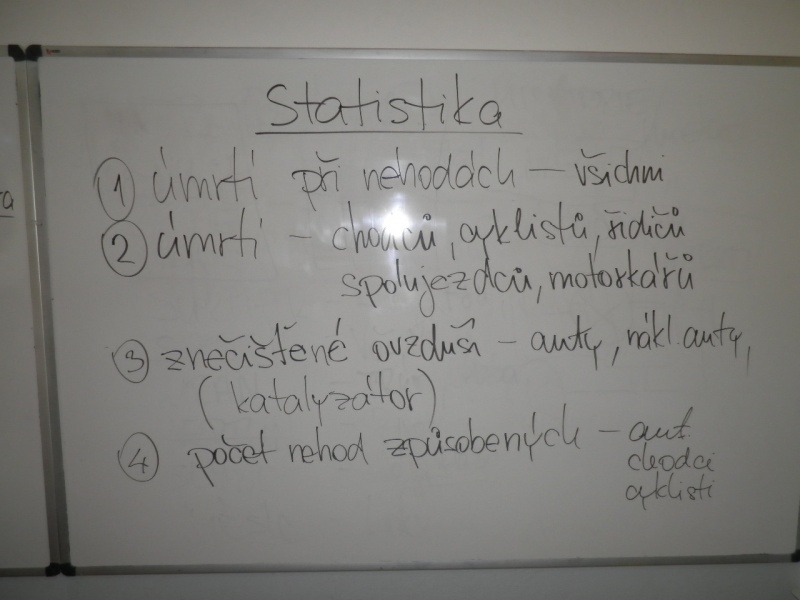 Statistika
1 úmrtí při nehodách – všichni
2 úmrtí – chodců, cyklistů, řidičů
spolujezdců, motorkářů
3 znečištěné ovzduší – auty, nákl. auty,
(katalyzátor)
4 počet nehod způsobených – aut.
chodci
cyklisti